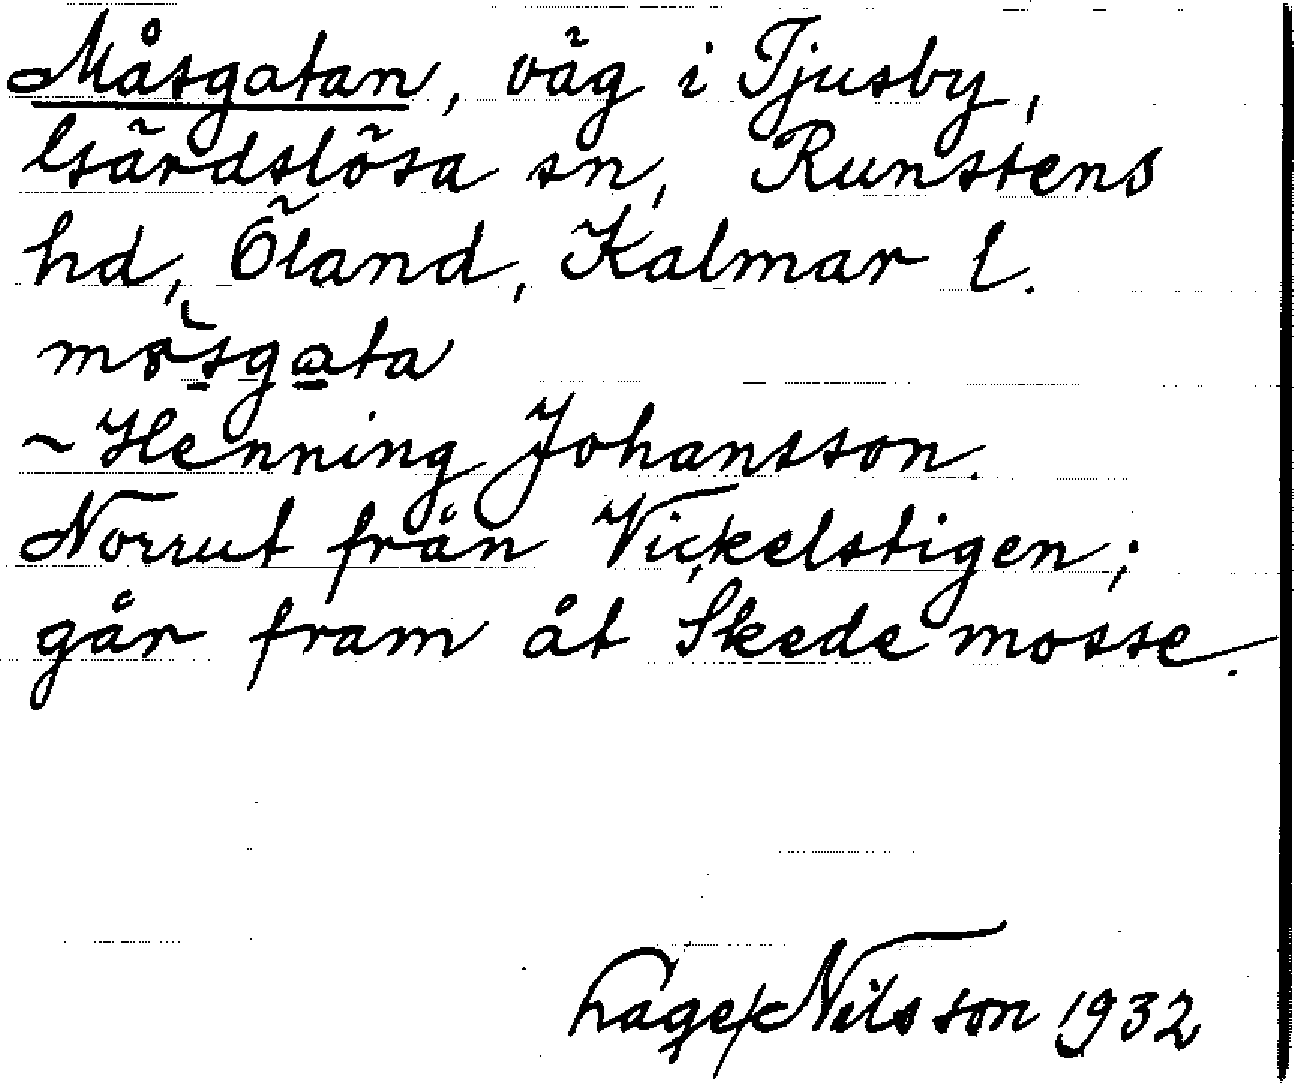 Måsgatan, väg i Tjusby,
Gärdslösa sn, Runstens
hd, Öland, Kalmar l.
mösgata
~ Henning Johansson.
Norrut från Vickelstigen;
går fram åt Skede mosse.
Nilsson 1932